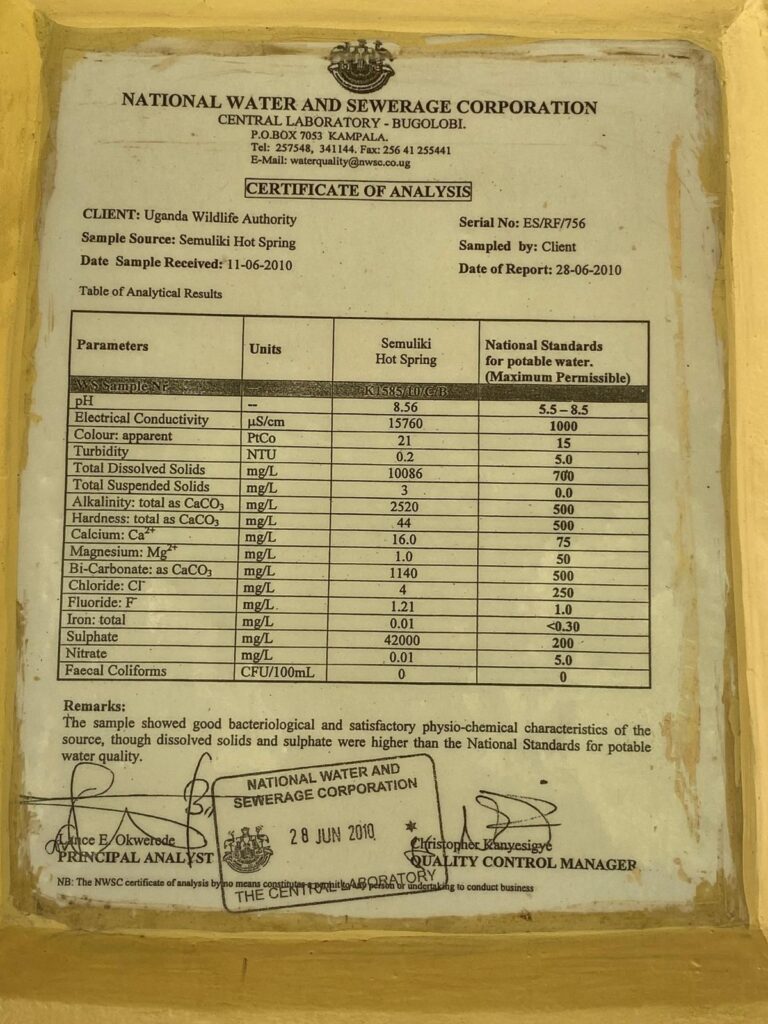 NATIONAL WATER AND SEWERAGE CORPORATION
CENTRAL LABORATORY - BUGOLOBI.
P.O.BOX 7053 KAMPALA.
Tel: 257548, 341144. Fax: 256 41 255441
E-Mail: waterquality@nwsc.co.ug
CERTIFICATE OF ANALYSIS
CLIENT: Uganda Wildlife Authority Serial No: ES/RF/756
Sample Source: Semuliki Hot Spring Sampled by: Client
Date Sample Received: 11-06-2010 Date of Report: 28-06-2010
Table of Analytical Results
Parameters Units Semuliki Hot Spring National Standards for potable water. (Maximum Permissible)
WS Sample Nr -- K1585/10/C/B
pH -- 8.56 5.5 – 8.5
Electrical Conductivity µS/cm 15760 1000
Colour: apparent PtCo 21 15
Turbidity NTU 0.2 5.0
Total Dissolved Solids mg/L 10086 700
Total Suspended Solids mg/L 3 0.0
Alkalinity: total as CaCO₃ mg/L 2520 500
Hardness: total as CaCO₃ mg/L 44 500
Calcium: Ca²⁺ mg/L 16.0 75
Magnesium: Mg²⁺ mg/L 1.0 50
Bi-Carbonate: as CaCO₃ mg/L 1140 500
Chloride: Cl⁻ mg/L 4 250
Fluoride: F⁻ mg/L 1.21 1.0
Iron: total mg/L 0.01 <0.30
Sulphate mg/L 42000 200
Nitrate mg/L 0.01 5.0
Faecal Coliforms CFU/100mL 0 0
Remarks:
The sample showed good bacteriological and satisfactory physio-chemical characteristics of the
source, though dissolved solids and sulphate were higher than the National Standards for potable
water quality.
NATIONAL WATER AND
SEWERAGE CORPORATION
28 JUN 2010
THE CENTRAL LABORATORY
Lance E. Okwerede Christopher Kanyesigye
PRINCIPAL ANALYST QUALITY CONTROL MANAGER
NB: The NWSC certificate of analysis by no means constitutes a permit to any person or undertaking to conduct business